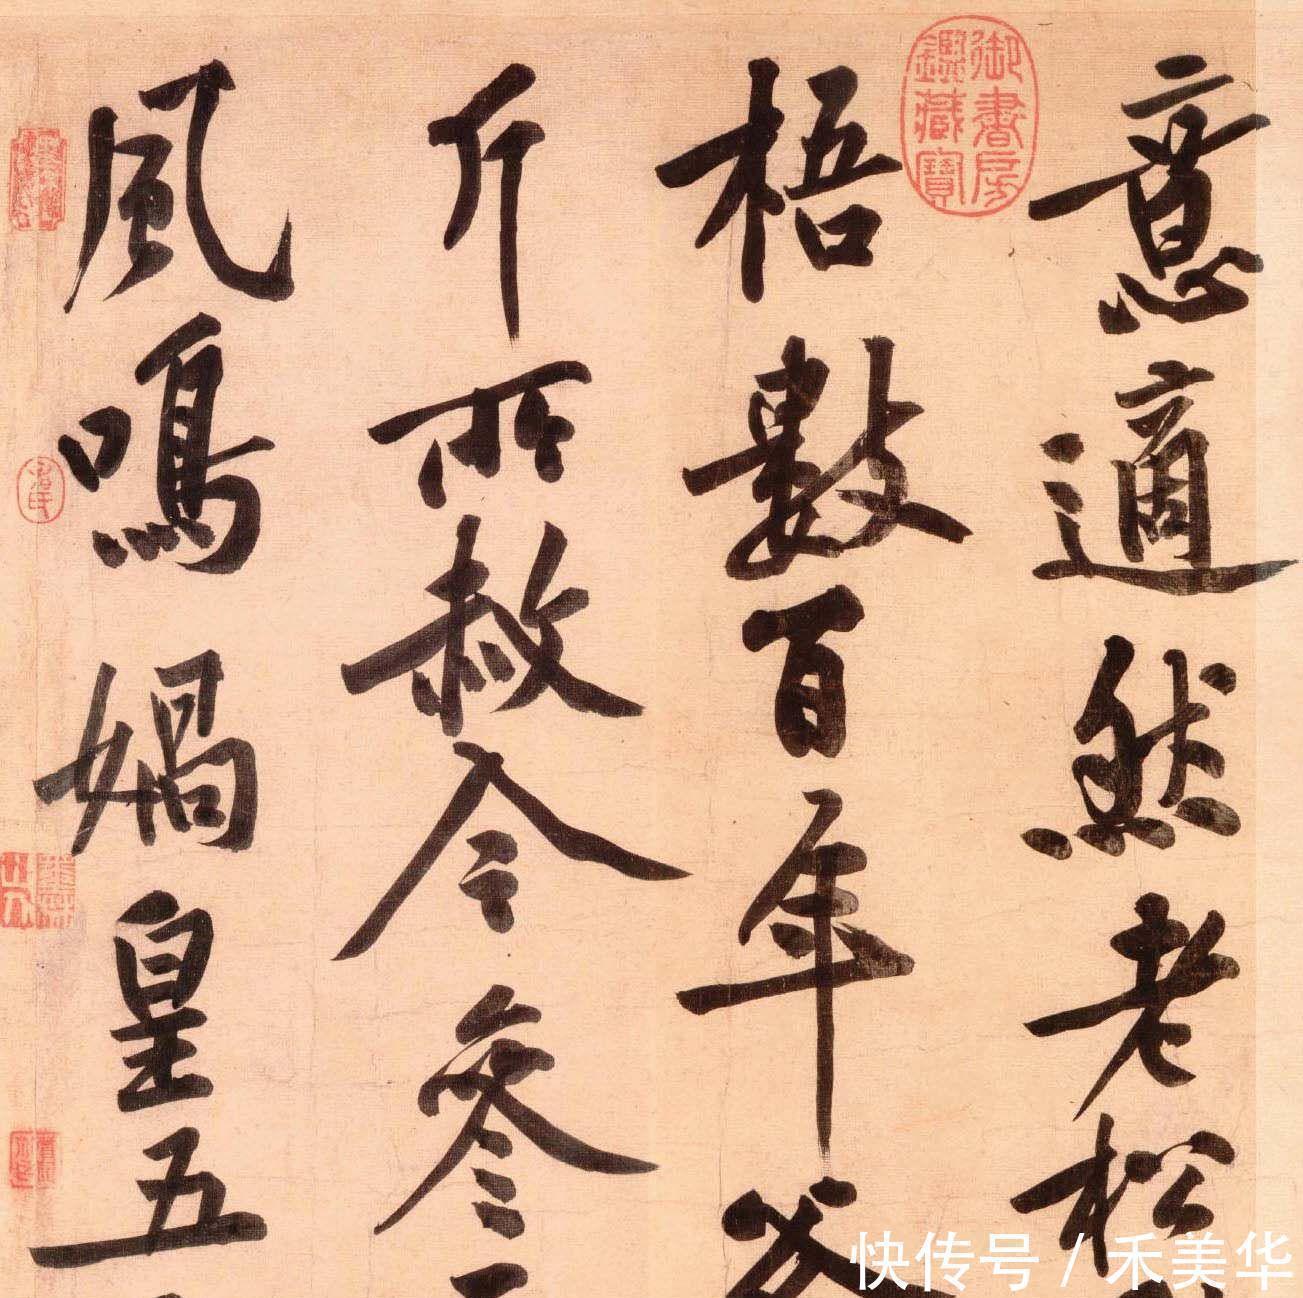 意適然老松
梧數百年斧
斤所赦今參
風鳴媧皇五
御書房
鑑藏寶
快传号 / 禾美华